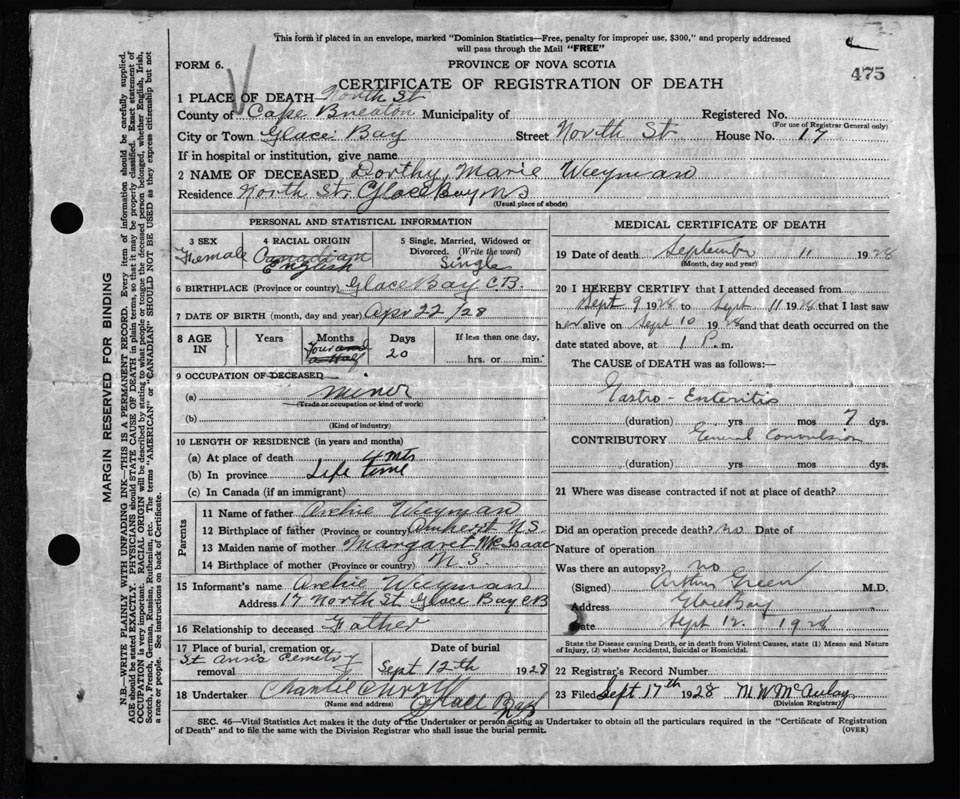 This form if placed in an envelope, marked "Dominion Statistics—Free, penalty for improper use, $300," and properly addressed
will pass through the Mail "FREE"
FORM 6.
PROVINCE OF NOVA SCOTIA
475
CERTIFICATE OF REGISTRATION OF DEATH
1 PLACE OF DEATH— North St
County of Cape Breaton Municipality of Registered No.
(For use of Registrar General only)
City or Town Glace Bay Street North St House No. 17
If in hospital or institution, give name
2 NAME OF DECEASED Dorthy Marie Weyman
Residence North St, Glace Bay NS
(Usual place of abode)
PERSONAL AND STATISTICAL INFORMATION
3 SEX 4 RACIAL ORIGIN 5 Single, Married, Widowed or
Divorced. (Write the word)
Female Canadian
English Single
6 BIRTHPLACE (Province or country) Glace Bay C.B.
7 DATE OF BIRTH (month, day and year) Apr 22 /28
8 AGE IN Years Months Days If less than one day,
Four and a Half 20 hrs. or min.
9 OCCUPATION OF DECEASED
(a) miner
(Trade or occupation or kind of work)
(b)
(Kind of industry)
10 LENGTH OF RESIDENCE (in years and months)
(a) At place of death 4 mts
(b) In province Life time
(c) In Canada (if an immigrant)
Parents
11 Name of father Archie Weyman
12 Birthplace of father (Province or country) Amherst N.S.
13 Maiden name of mother Margaret McIsaac
14 Birthplace of mother (Province or country) N.S.
15 Informant's name Archie Weyman
Address 17 North St Glace Bay CB
16 Relationship to deceased Father
17 Place of burial, cremation or removal Date of burial
St Anns Cemetry Sept 12th 1928
18 Undertaker Charlie Curry
(Name and address) Glace Bay
MEDICAL CERTIFICATE OF DEATH
19 Date of death September 11 1928
(Month, day and year)
20 I HEREBY CERTIFY that I attended deceased from
Sept 9 1928 to Sept 11 1928 that I last saw
her alive on Sept 10 1928 and that death occurred on the
date stated above, at 1 P. m.
The CAUSE of DEATH was as follows:—
Gastro-Enteritis
(duration) yrs mos 7 dys.
CONTRIBUTORY General Convulsion
(duration) yrs mos dys.
21 Where was disease contracted if not at place of death?
Did an operation precede death? no Date of
Nature of operation
Was there an autopsy? no
(Signed) Arthur Green M.D.
Address Glace Bay
Date Sept 12. 1928
State the Disease causing Death, or in death from Violent Causes, state (1) Means and Nature
of Injury, (2) whether Accidental, Suicidal or Homicidal.
22 Registrar's Record Number
23 Filed Sept 17th 1928 M W McAulay
(Division Registrar)
SEC. 46—Vital Statistics Act makes it the duty of the Undertaker or person acting as Undertaker to obtain all the particulars required in the "Certificate of Registration
of Death" and to file the same with the Division Registrar who shall issue the burial permit.
(OVER)
MARGIN RESERVED FOR BINDING
N.B.—WRITE PLAINLY WITH UNFADING INK—THIS IS A PERMANENT RECORD. Every item of information should be carefully supplied.
AGE should be stated EXACTLY. PHYSICIANS should STATE CAUSE OF DEATH in plain terms, so that it may be properly classified. Exact statement of
OCCUPATION is very important. RACIAL ORIGIN will be described by stating to what people or tongue the deceased person belonged, whether English, Irish,
Scotch, French, German, Russian, Ruthenian, etc. The terms "AMERICAN" or "CANADIAN" SHOULD NOT BE USED as they express citizenship but not
a race or people. See instructions on back of Certificate.